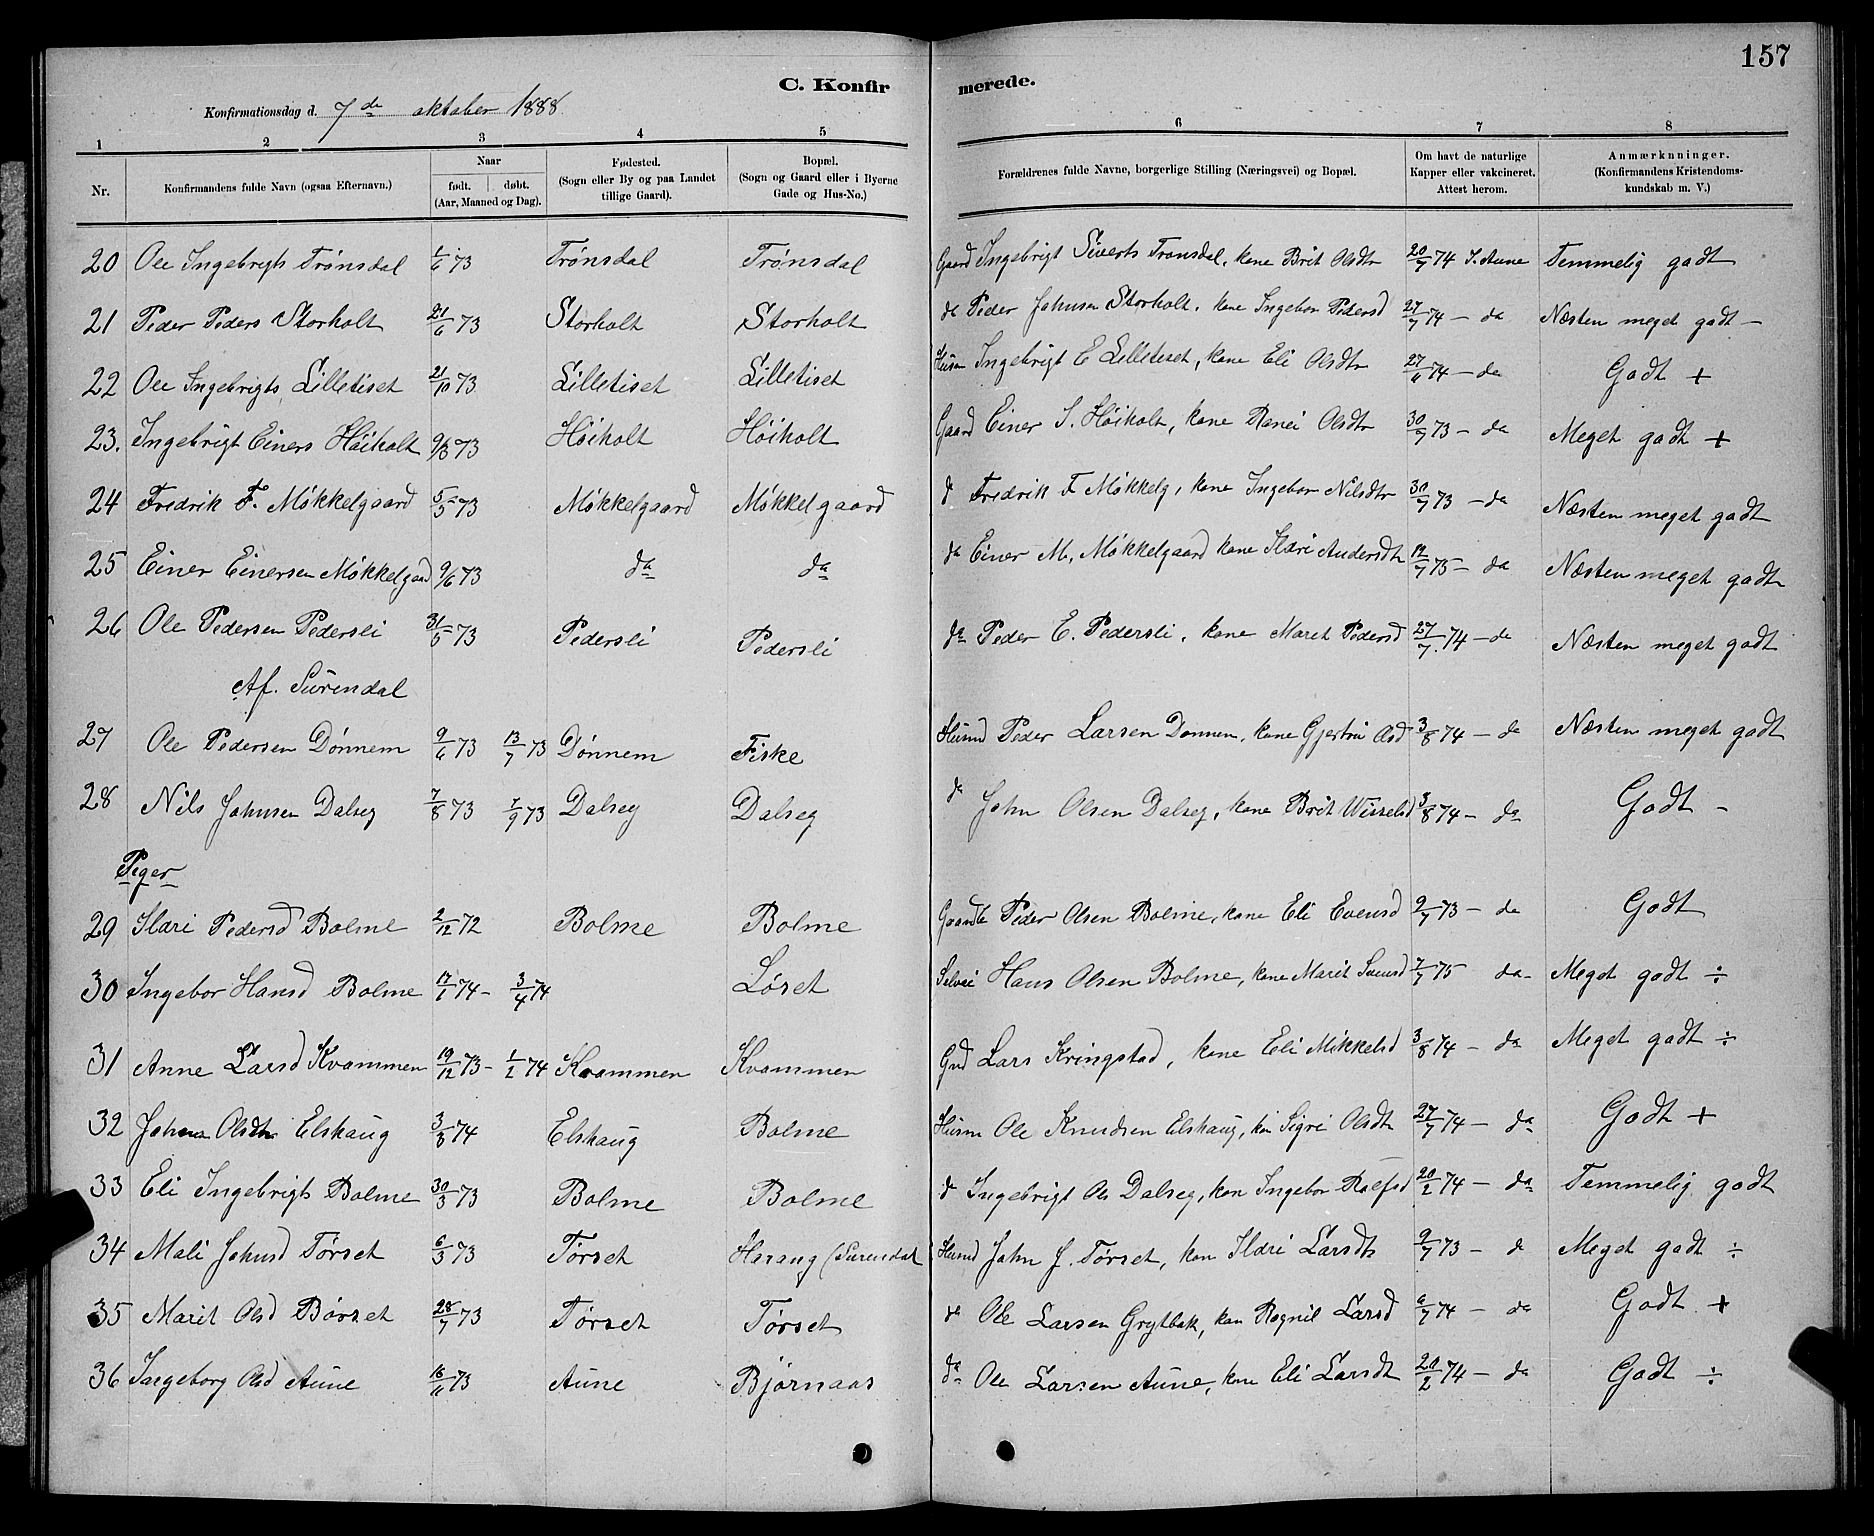 157
C. Konfirmerede.
Konfirmationsdag d. 7de oktober 1888.
1 2 3 4 5 6 7 8
Nr. Konfirmandens fulde Navn (ogsaa Efternavn.) Naar født. døbt. (Aar, Maaned og Dag). Fødested. (Sogn eller By og paa Landet tillige Gaard). Bopæl. (Sogn og Gaard eller i Byerne Gade og Hus-No.) Forældrenes fulde Navne, borgerlige Stilling (Næringsvei) og Bopæl. Om havt de naturlige Kapper eller vakcineret. Attest herom. Anmærknninger. (Konfirmandens Kristendomskundskab m. V.)
20 Ole Ingebrigts Trønsdal 1/6 73 Trønsdal Trønsdal Gaard Ingebrigt Siverts Tronsdal, kone Brit Olsdtr 20/7 74 I. Aune Temmelig godt
21 Peder Peders Storholt 21/6 73 Storholt Storholt do Peder Johnsen Storholt, kone Ingebor Pedersd 27/7 74 – do Næsten meget godt –
22 Ole Ingebrigts Lilletiset 21/10 73 Lilletiset Lilletiset Husm Ingebrigt E Lilletiset, kone Eli Olsdtr 27/6 74 – do Godt +
23. Ingebrigt Einers Höiholt 9/3 73 Höiholt Höiholt Gaard Einer S. Höiholt, kone Olsdtr 30/7 73 – do Meget godt +
24 Fredrik F. Mökkelgaard 5/5 73 Mökkelgaard Mökkelgaard d Fredrik F Mökkelg, kone Ingebor Nilsdtr 30/7 73 – do Næsten meget godt
25 Einer Einersen Mökkelgaard 9/6 73 do do do Einer M. Mökkelgaard kone Ildri Andersdt 12/7 75 – do Næsten meget godt
26 Ole Pedersen Pedersli 31/5 73 Pedersli Pedersli do Peder E. Pedersli, kone Maret Pedersd 27/7 74 – do Næsten meget godt
Af. Surendal
27 Ole Pedersen Dönnem 9/6 73 13/7 73 Dönnem Fiske Husmd Peder Larsen Donnem, kone Gjertru Olsd 3/8 74 – do Næsten meget godt
28 Nils Johnsen Dalseg 7/8 73 7/9 73 Dalseg Dalseg do John Olsen Dalseg, kone Brit 3/8 74 – do Godt –
Piger
29 Ildri Pedersd Bolme 2/12 72 Bolme Bolme Peder Olsen Bolme, kone Eli Evensd 9/7 73 – do Godt
30 Ingebor Hansd Bolme 17/1 74 – 3/4 74 Löset Selvei Hans Olsen Bolme, kone Marit 7/7 75 do Meget godt ÷
31 Anne Larsd Kvammen 19/12 73 – 1/2 74 Kvammen Kvammen Gmd Lars Kringstad, kone Eli Mikkelsd 3/8 74 – do Meget godt ÷
32 Olsdtr Elshaug 3/3 74 Elshaug Bolme Husm Ole Knudsen Elshaug, kon Sigri Olsdt 27/7 74 – do Godt +
33 Eli Ingebrigts Bolme 30/3 73 Bolme Bolme d Ingebrigt Ols Dalseg, kon Ingebor 20/2 74 – do Temmelig godt
34 Mali Johnsd Törset 6/3 73 Törset Harang (Surendal Husmd John J. Törset, kon Ildri Larsdt 9/7 73 – d Meget godt ÷
35 Marit Olsd Börset 28/7 73 Törset Törset do Ole Larsen Grytbak, kon Ragnil Larsd 6/7 74 – do Godt +
36 Ingeborg Olsd Aune 16/11 73 Aune Bjørnaas do Ole Larsen Aune, kone Eli Larsdt 20/2 74 – do Godt ÷